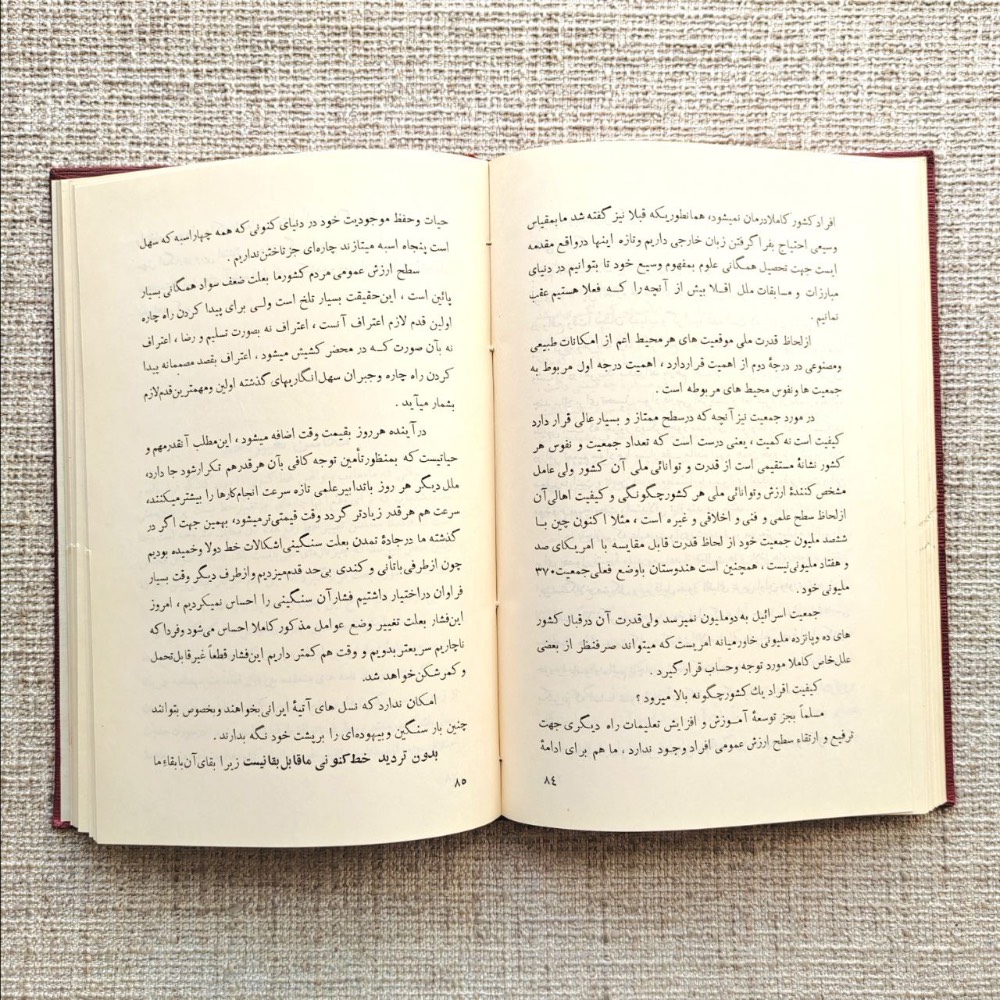 افراد کشور کاملا درمان نمیشود، همانطوریکه قبلا نیز گفته شد ما بمقیاس
وسیعی احتیاج بفرا گرفتن زبان خارجی داریم وتازه اینها درواقع مقدمه
ایست جهت تحصیل همگانی علوم بمفهوم وسیع خود تا بتوانیم در دنیای
مبارزات و مسابقات ملل اقلا بیش از آنچه را که فعلا هستیم عقب
نمانیم .
ازلحاظ قدرت ملی موقعیت های هر محیط اعم از امکانات طبیعی
ومصنوعی در درجهٔ دوم از اهمیت قراردارد ، اهمیت درجه اول مربوط به
جمعیت ها ونفوس محیط های مربوطه است .
در مورد جمعیت نیز آنچه که درسطح ممتاز و بسیار عالی قرار دارد
کیفیت است نه کمیت ، یعنی درست است که تعداد جمعیت و نفوس هر
کشور نشانهٔ مستقیمی است از قدرت و توانائی ملی آن کشور ولی عامل
مشخص کنندهٔ ارزش وتوانائی ملی هر کشورچگونگی و کیفیت اهالی آن
ازلحاظ سطح علمی و فنی و اخلاقی و غیره است ، مثلا اکنون چین با
ششصد ملیون جمعیت خود از لحاظ قدرت قابل مقایسه با امریکای صد
و هفتاد ملیونی نیست ، همچنین است هندوستان باوضع فعلی جمعیت ۳۷۰
ملیونی خود .
جمعیت اسرائیل به دوملیون نمیرسد ولی قدرت آن درقبال کشور
های ده وپانزده ملیونی خاورمیانه امریست که میتواند صرفنظر از بعضی
علل خاص کاملا مورد توجه وحساب قرار گیرد .
کیفیت افراد یك کشورچگونه بالا میرود ؟
مسلماً بجز توسعهٔ آموزش و افزایش تعلیمات راه دیگری جهت
ترفیع و ارتقاء سطح ارزش عمومی افراد وجود ندارد ، ما هم برای ادامهٔ
٨٤
حیات وحفظ موجودیت خود در دنیای کنونی که همه چهاراسبه که سهل
است پنجاه اسبه میتازند چاره‌ای جز تاختن نداریم .
سطح ارزش عمومی مردم کشورما بعلت ضعف سواد همگانی بسیار
پائین است ، این‌حقیقت بسیار تلخ است ولی برای پیدا کردن راه چاره
اولین قدم لازم اعتراف آنست ، اعتراف نه بصورت تسلیم و رضا ، اعتراف
نه بآن صورت که در محضر کشیش میشود ، اعتراف بقصد مصممانه پیدا
کردن راه چاره وجبران سهل‌انگاریهای گذشته اولین ومهمترین قدم لازم
بشمار میآید .
درآینده هرروز بقیمت وقت اضافه میشود ، این‌مطلب آنقدرمهم و
حیاتیست که بمنظورتأمین توجه کافی بآن هرقدرهم تکرارشود جا دارد،
ملل دیگر هر روز باتدابیرعلمی تازه سرعت انجام‌کارها را بیشترمیکنند،
سرعت هم هرقدر زیادتر گردد وقت قیمتی‌ترمیشود، بهمین جهت اگر در
گذشته ما درجادهٔ تمدن بعلت سنگینی اشکالات خط دولا وخمیده بودیم
چون ازطرفی باتأنی و کندی بی‌حد قدم‌میزدیم وازطرف دیگر وقت بسیار
فراوان دراختیار داشتیم فشارآن سنگینی را احساس نمیکردیم ، امروز
این‌فشار بعلت تغییر وضع عوامل مذکور کاملا احساس می‌شود وفردا که
ناچاریم سریعتر بدویم و وقت هم کمتر داریم این‌فشار قطعاً غیرقابل‌تحمل
و کمرشکن‌خواهد شد.
امکان ندارد که نسل های آتیهٔ ایرانی بخواهند وبخصوص بتوانند
چنین بار سنگین وبیهوده‌ای را برپشت خود نگه بدارند .
بدون تردید خط کنونی ما قابل بقا نیست زیرا بقای آن بابقاءِ ما
٨٥